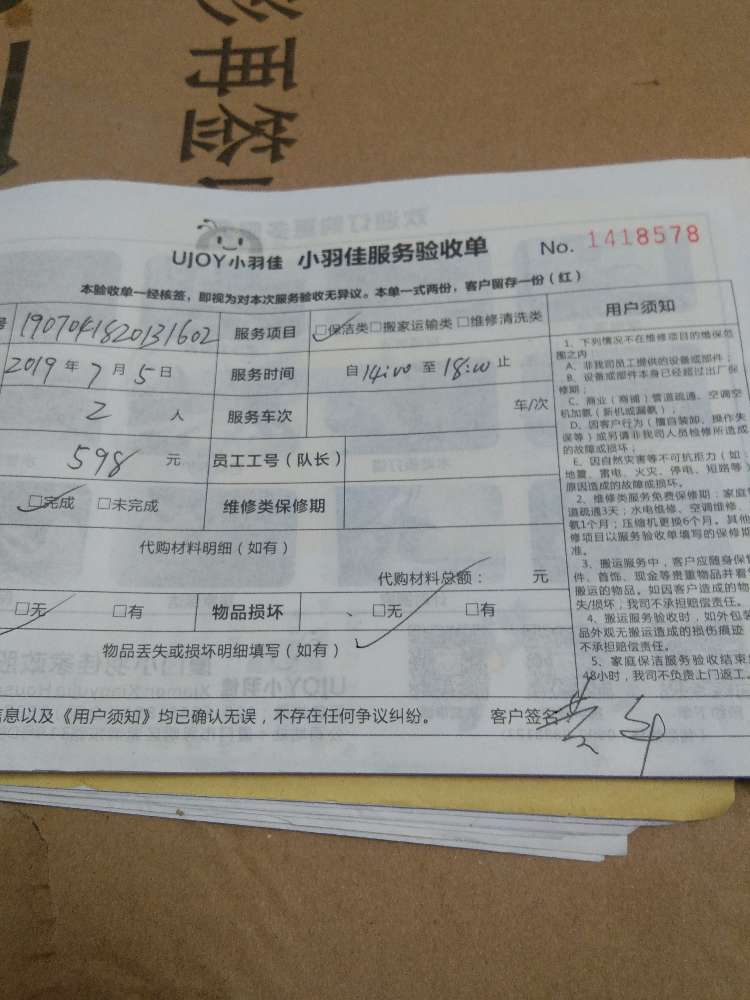 再签
UJOY小羽佳 小羽佳服务验收单 No. 1418578
本验收单一经核签，即视为对本次服务验收无异议。本单一式两份，客户留存一份（红）
号 1907041820131602 服务项目 □保洁类□搬家运输类□维修清洗类
2019年7月5日 服务时间 自14:00至18:00止
2人 服务车次 车/次
598元 员工工号（队长）
□完成 □未完成 维修类保修期
代购材料明细（如有）
代购材料总额： 元
□无 □有 物品损坏 、□无 □有
物品丢失或损坏明细填写（如有）
信息以及《用户须知》均已确认无误，不存在任何争议纠纷。 客户签名：
用户须知
1、下列情况不在维修项目的维保范
围之内：
A、非我司员工提供的设备或部件；
B、设备或部件本身已经超过出厂保
修期；
C、商业（商铺）管道疏通、空调空
机加氨（新机或漏氨）；
D、因客户行为（擅自装卸、操作失
误等）或另请非我司人员检修所造成
的故障或损坏；
E、因自然灾害等不可抗拒力（如：
地震、雷电、火灾、停电、短路等）
原因造成的故障或损坏。
2、维修类服务免费保修期：家庭管
道疏通3天；水电维修、空调维修、
氨1个月；压缩机更换6个月。其他
修项目以服务验收单填写的保修期
准。
3、搬运服务中，客户应随身保管
件、首饰、现金等贵重物品并看管
搬运的物品。如因客户造成的物
失/损坏，我司不承担赔偿责任。
4、搬运服务验收时，如外包装
品外观无搬运造成的损伤痕迹
不承担赔偿责任。
5、家庭保洁服务验收结束
48小时，我司不负责上门返工。